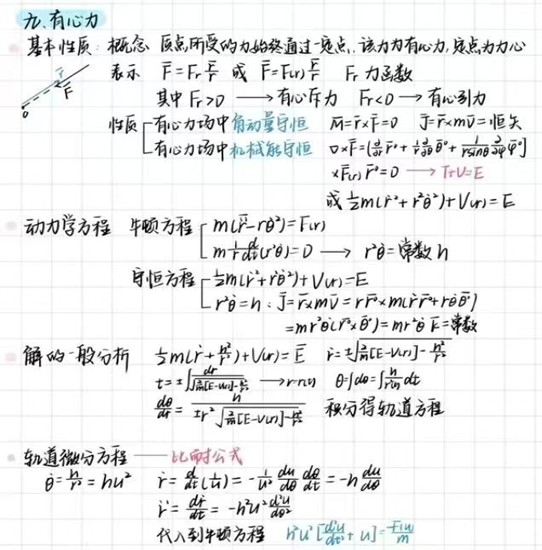 九、有心力
基本性质：概念 质点所受的力始终通过一定点，该力为有心力，定点为力心
表示 F̄=Fr r̄/r 或 F̄=F(r) r̄/r Fr 力函数
其中 Fr>0 → 有心斥力 Fr<0 → 有心引力
r̄ F̄ o
性质 有心力场中角动量守恒 M̄=r̄×F̄=0 J̄=r̄×mv̄=恒矢
有心力场中机械能守恒 ∇×F̄=[∂/∂r r̄°+1/r ∂/∂θ θ̄°+1/(r sinθ) ∂/∂φ φ̄°]
×F(r) r̄°=0 → T+V=E
或 ½m(ṙ²+r²θ̇²)+V(r)=E
动力学方程 牛顿方程 m(r̈-rθ̇²)=F(r)
m 1/r d/dt(r²θ̇)=0 → r²θ̇=常数h
守恒方程 ½m(ṙ²+r²θ̇²)+V(r)=E
r²θ̇=h：J̄=r̄×mv̄=r r̄°×m(ṙ r̄°+rθ̇ θ̄°)
=mr²θ̇(r̄°×θ̄°)=mr²θ̇ k̄=常数
解的一般分析 ½m(ṙ²+h²/r²)+V(r)=E ṙ=±√(2/m[E-V(r)]-h²/r²)
t=±∫dr/√(2/m[E-V(r)]-h²/r²) → r=r(t) θ=∫dθ=∫h/r²(t) dt
dθ/dr=h/(±r²√(2/m[E-V(r)]-h²/r²)) 积分得轨道方程
轨道微分方程 —— 比耐公式
θ̇=h/r²=hu² ṙ=d/dt(1/u)=-1/u² du/dθ dθ/dt=-h du/dθ
r̈=dṙ/dt=-h²u² d²u/dθ²
代入到牛顿方程 h²u²[d²u/dθ²+u]=-F(u)/m